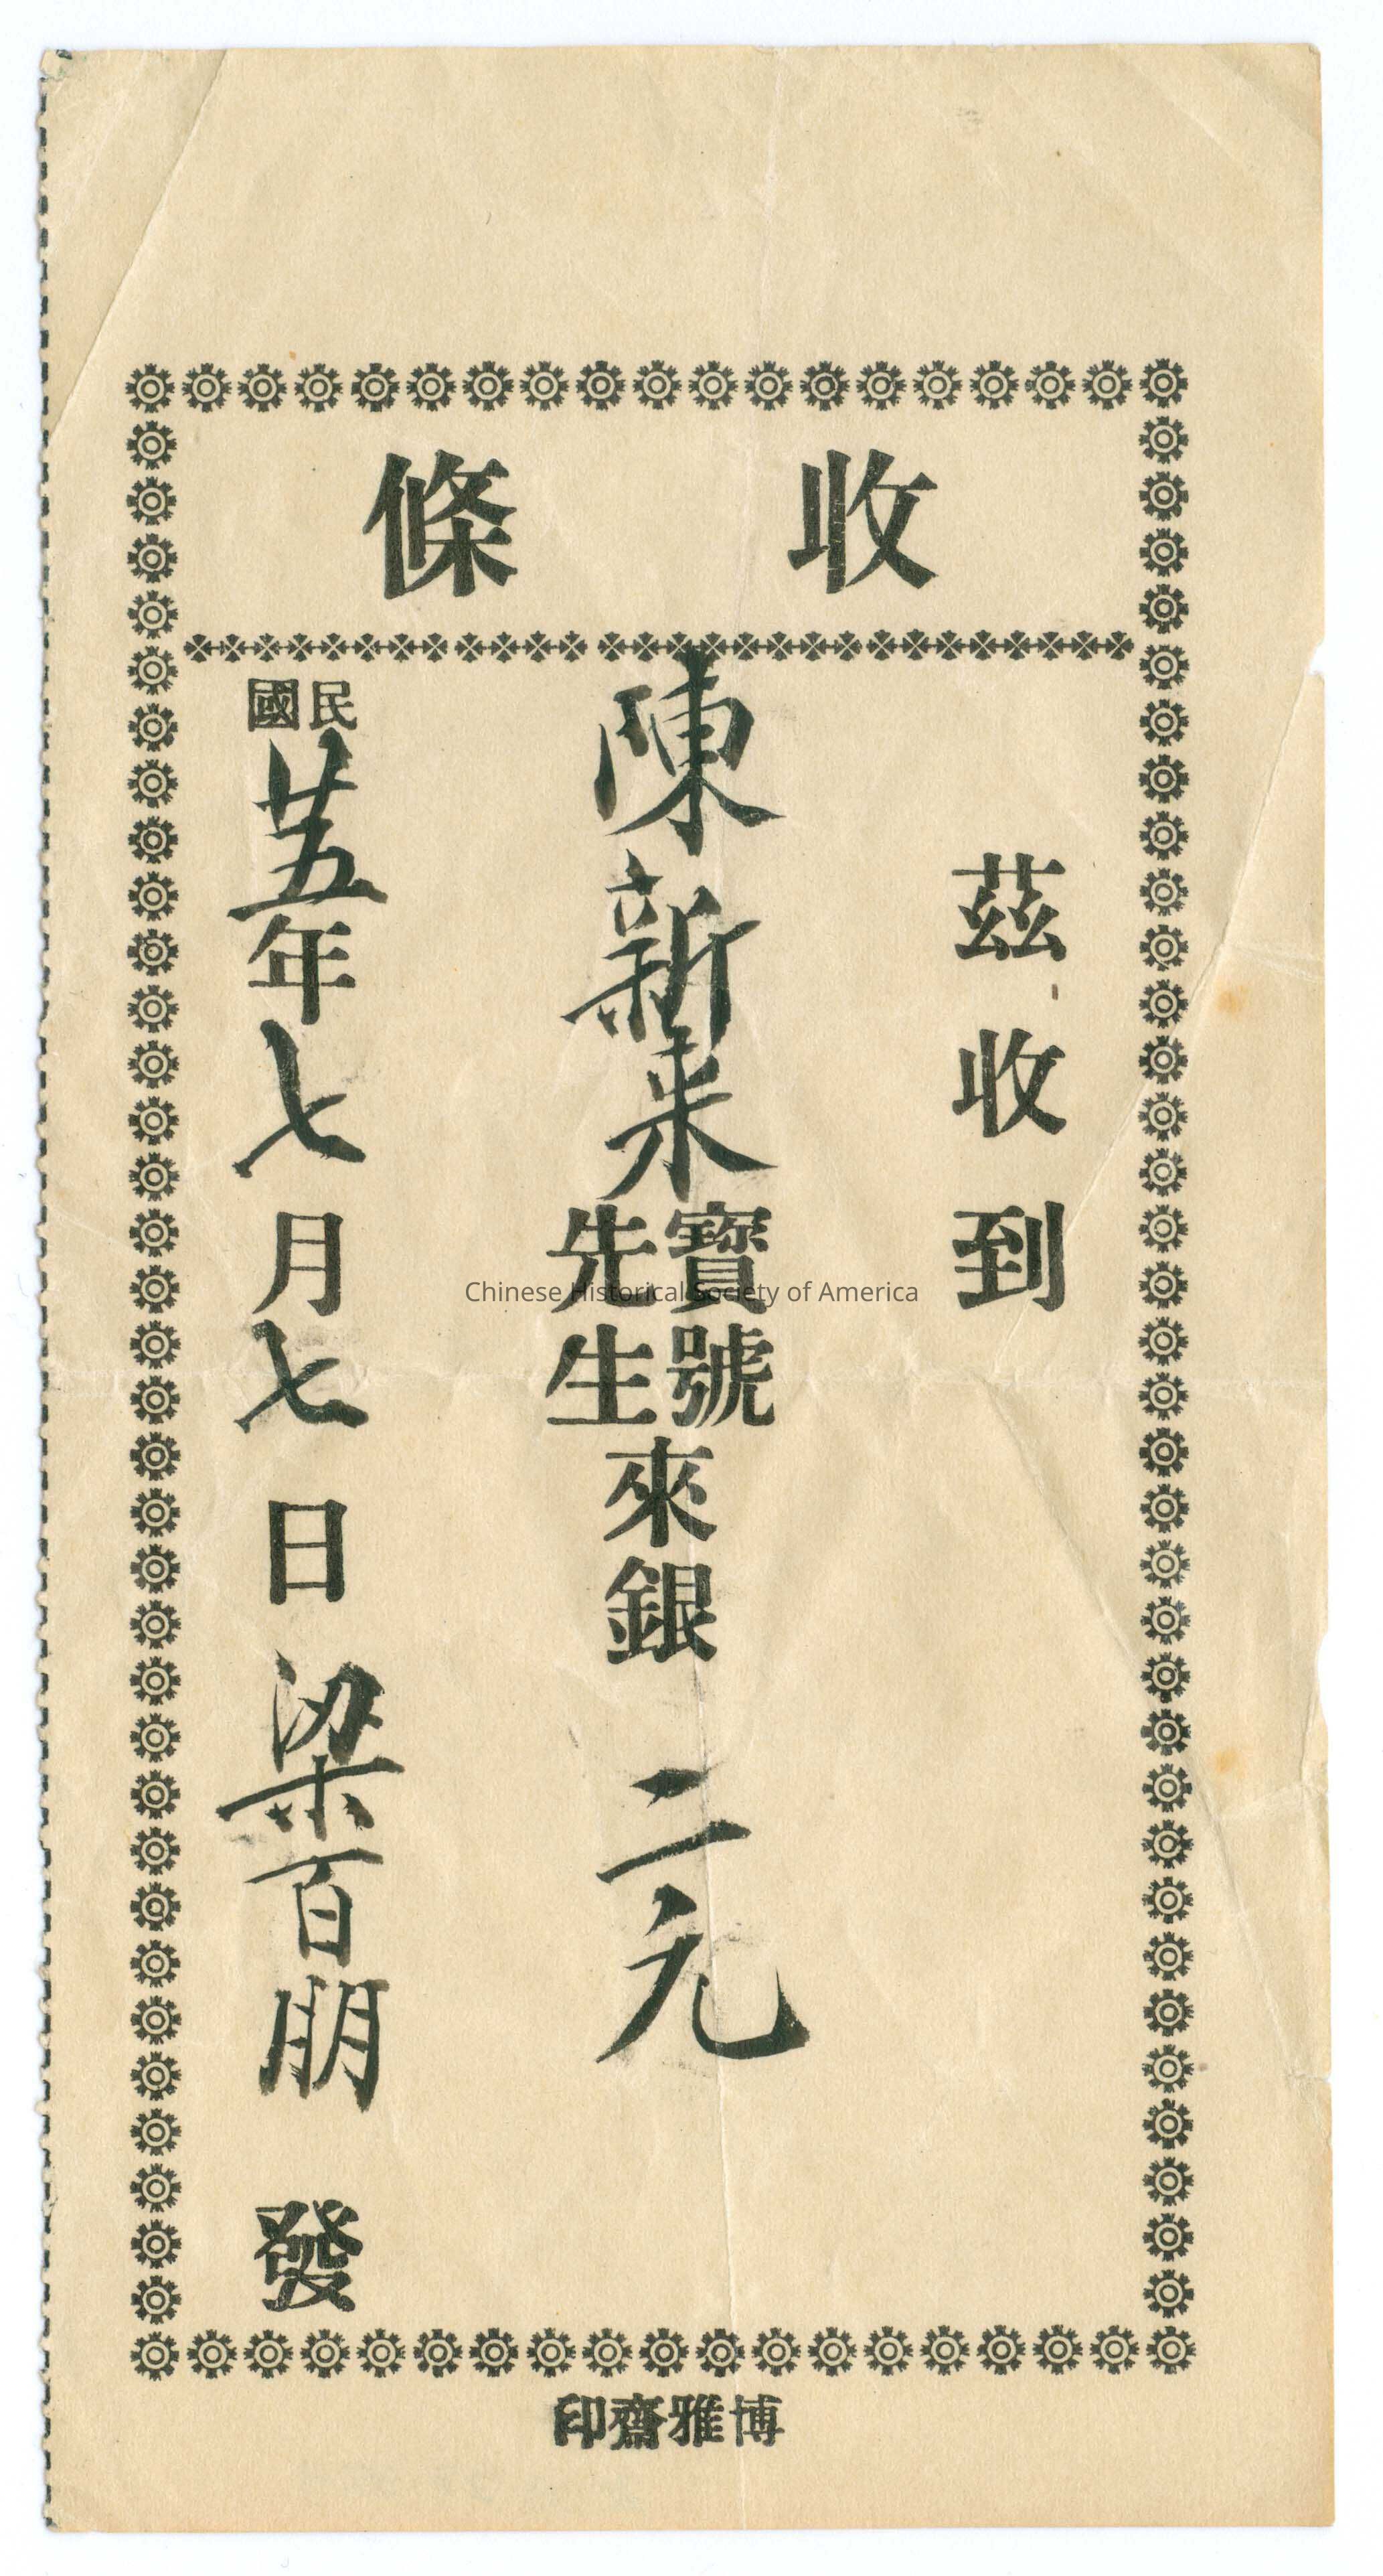 收條
茲收到
陳新来寶號先生來銀二元
民國廿五年七月七日梁百朋發
博雅齋印
Chinese Historical Society of America